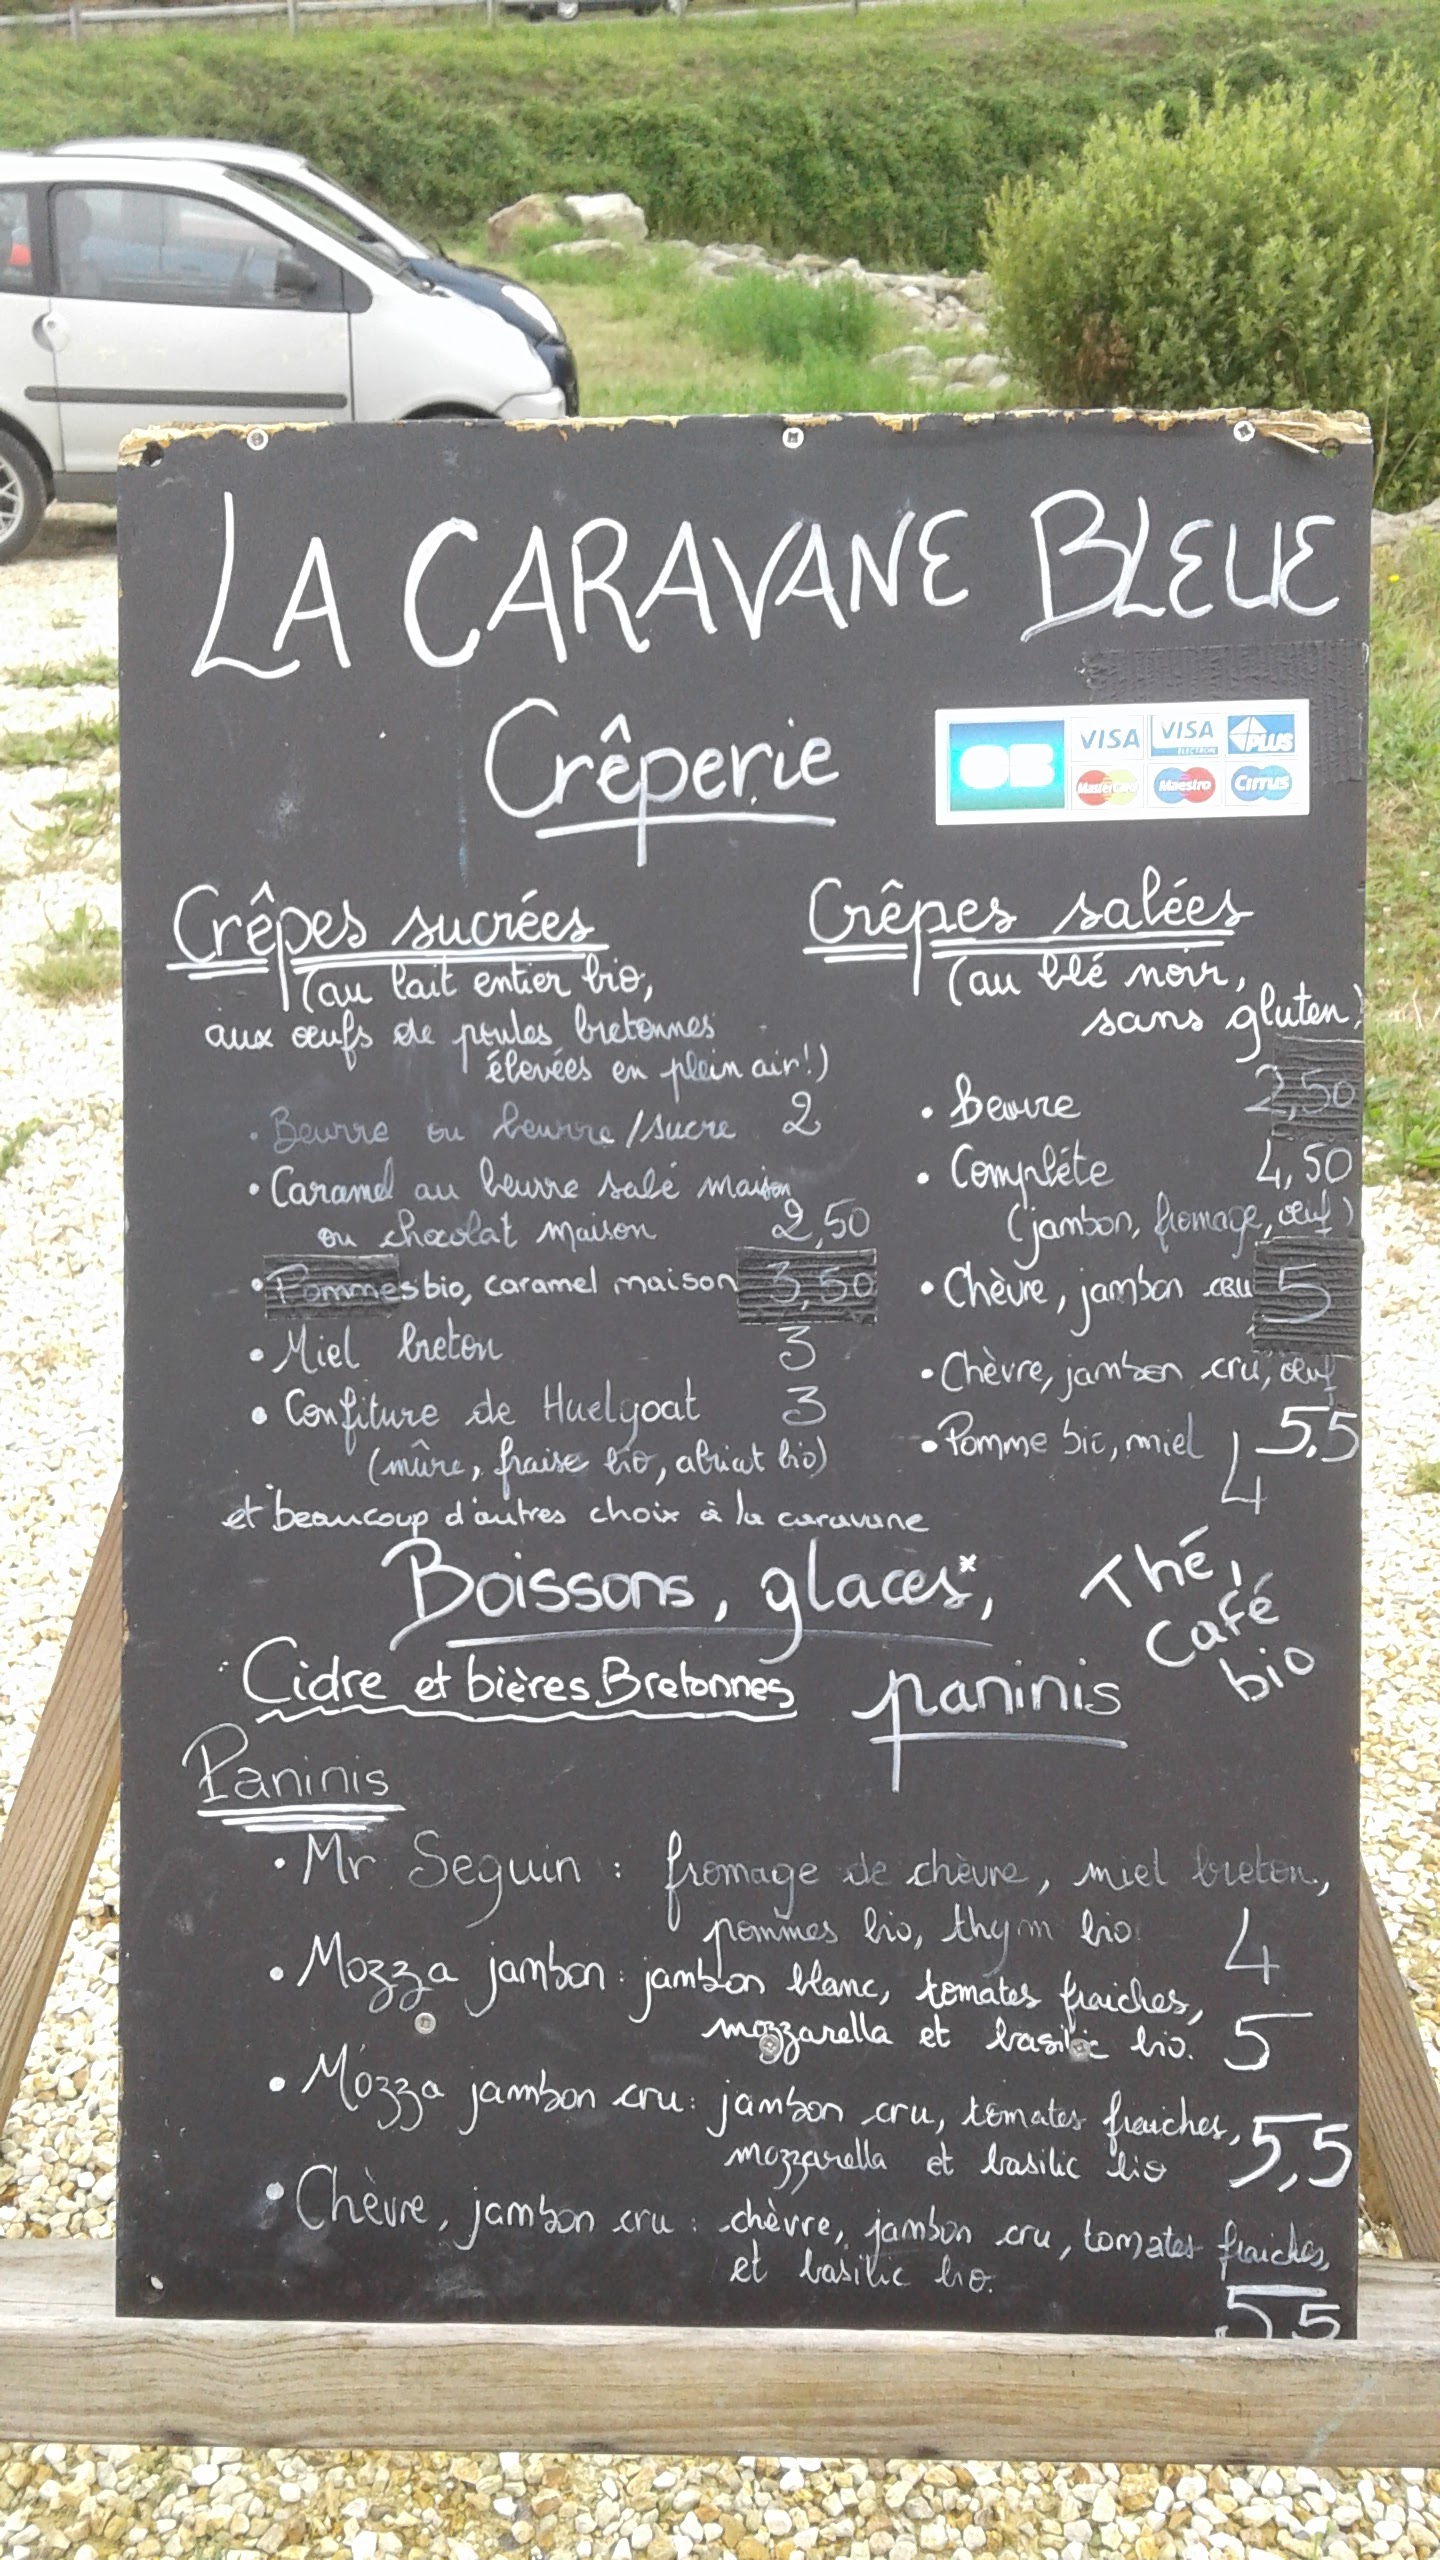 LA CARAVANE BLEUE
Crêperie
CB VISA VISA ELECTRON PLUS
MasterCard Maestro Cirrus
Crêpes sucrées
(au lait entier bio,
aux œufs de poules bretonnes
élevées en plein air!)
• Beurre ou beurre/sucre 2
• Caramel au beurre salé maison
ou chocolat maison 2,50
• Pommes bio, caramel maison 3,50
• Miel breton 3
• Confiture de Huelgoat 3
(mûre, fraise bio, abricot bio)
et beaucoup d'autres choix à la caravane
Crêpes salées
(au blé noir,
sans gluten)
• Beurre 2,50
• Complète 4,50
(jambon, fromage, œuf)
• Chèvre, jambon CRU 5
• Chèvre, jambon cru, œuf
5,5
• Pomme bio, miel
4
Boissons, glaces*,
Thé,
Café
bio
Cidre et bières Bretonnes paninis
Paninis
• Mr Seguin : fromage de chèvre, miel breton,
pommes bio, thym bio 4
• Mozza jambon : jambon blanc, tomates fraiches,
mozzarella et basilic bio. 5
• Mozza jambon cru : jambon cru, tomates fraiches,
mozzarella et basilic bio 5,5
• Chèvre, jambon cru : chèvre, jambon cru, tomates fraiches,
et basilic bio.
5,5